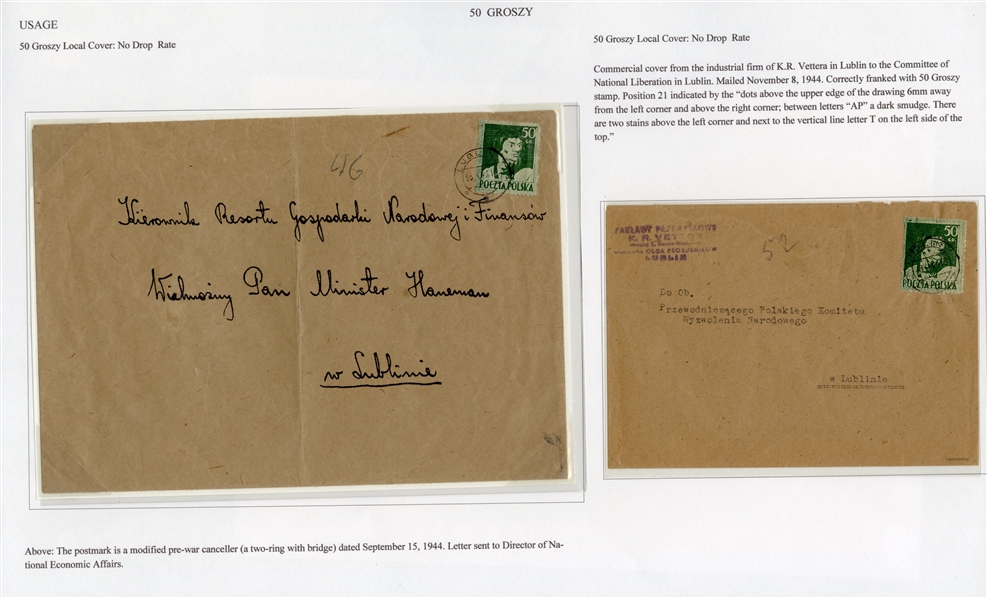 50 GROSZY
USAGE
50 Groszy Local Cover: No Drop Rate
46
50
GR.
POCZTA POLSKA
Kierownik Resortu Gospodarki Narodowej i Finansów
Wielmożny Pan Minister Haneman
w Lublinie
Above: The postmark is a modified pre-war canceller (a two-ring with bridge) dated September 15, 1944. Letter sent to Director of Na-
tional Economic Affairs.
50 Groszy Local Cover: No Drop Rate
Commercial cover from the industrial firm of K.R. Vettera in Lublin to the Committee of
National Liberation in Lublin. Mailed November 8, 1944. Correctly franked with 50 Groszy
stamp. Position 21 indicated by the “dots above the upper edge of the drawing 6mm away
from the left corner and above the right corner; between letters “AP” a dark smudge. There
are two stains above the left corner and next to the vertical line letter T on the left side of the
top.”
ZAKŁADY PRZEMYSŁOWE
K. R. VETTER
LUBLIN
52
50
POCZTA POLSKA
Do Ob.
Przewodniczącego Polskiego Komitetu
Wyzwolenia Narodowego
w Lublinie